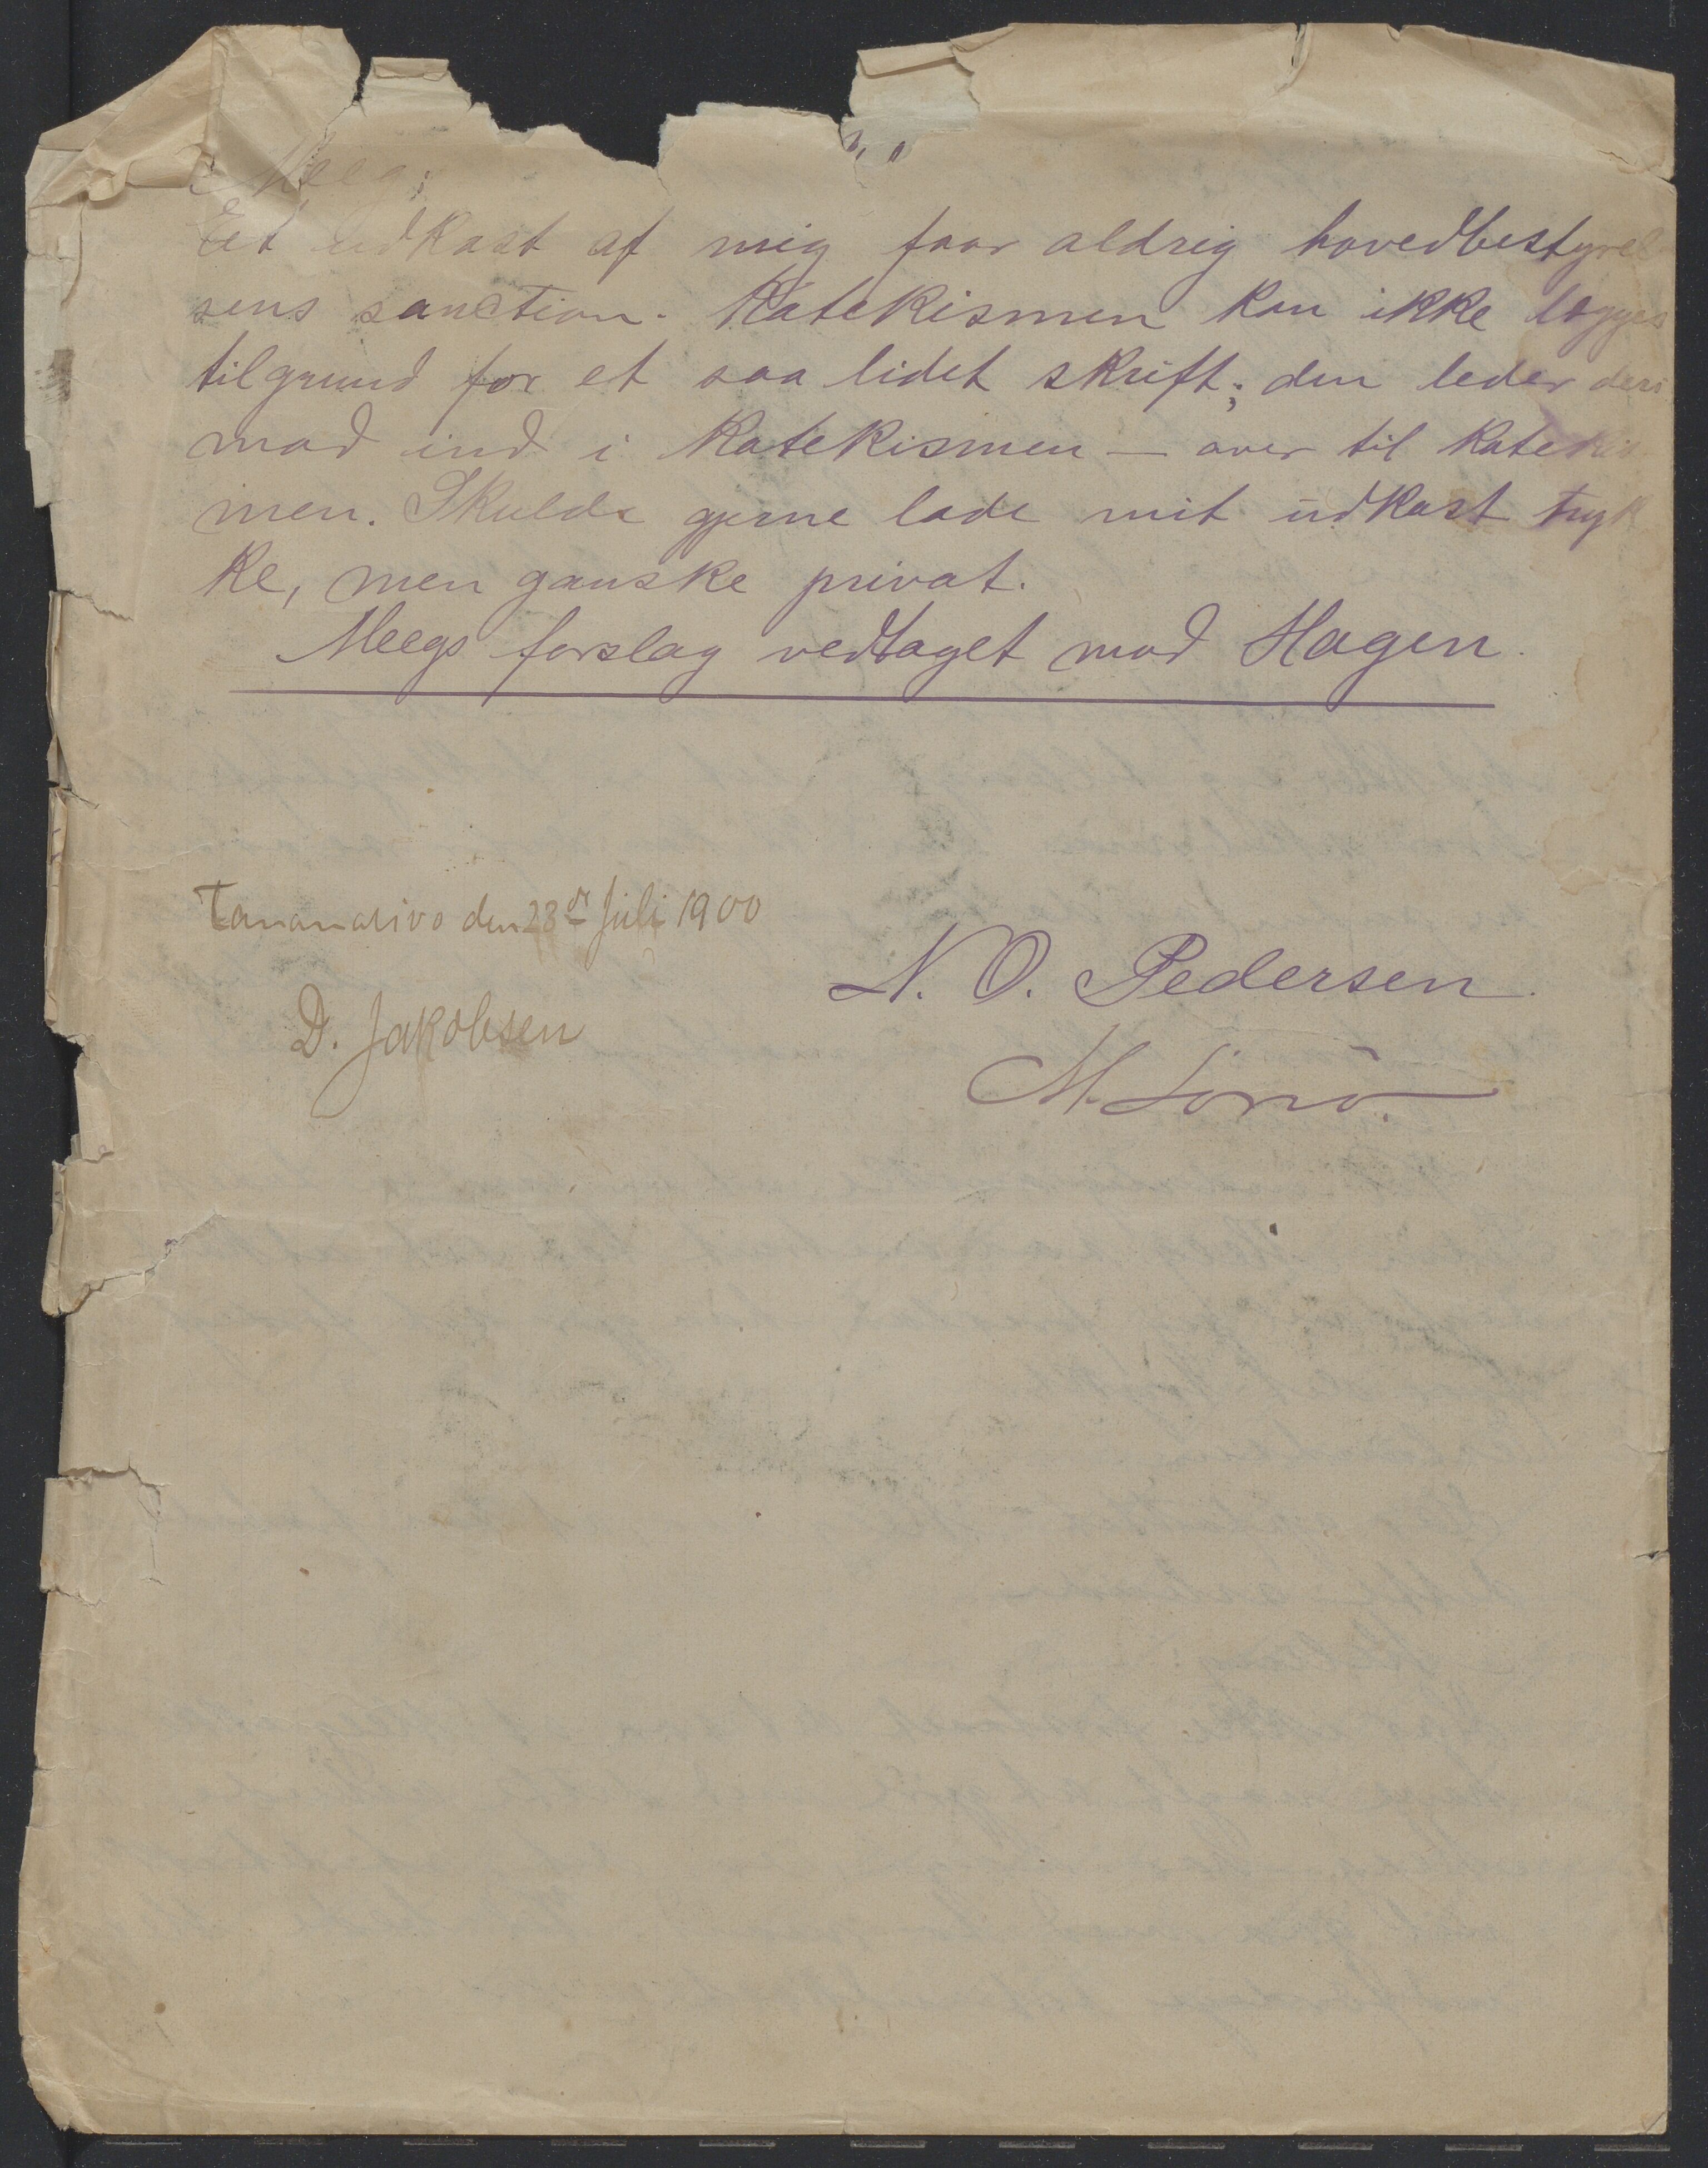 Meeg:
Et udkast af mig faar aldrig hovedbestyrel
sens sanction. Katekismen kan ikke lægges
tilgrund for et saa lidet skrift; den leder deri
mod ind i Katekismen — over til Katekis
men. Skulde gjerne lade mit udkast tryk
ke, men ganske privat.
Meegs forslag vedtaget mod Hagen.
Tananarivo den 28de Juli 1900
N. O. Pedersen.
D. Jakobsen